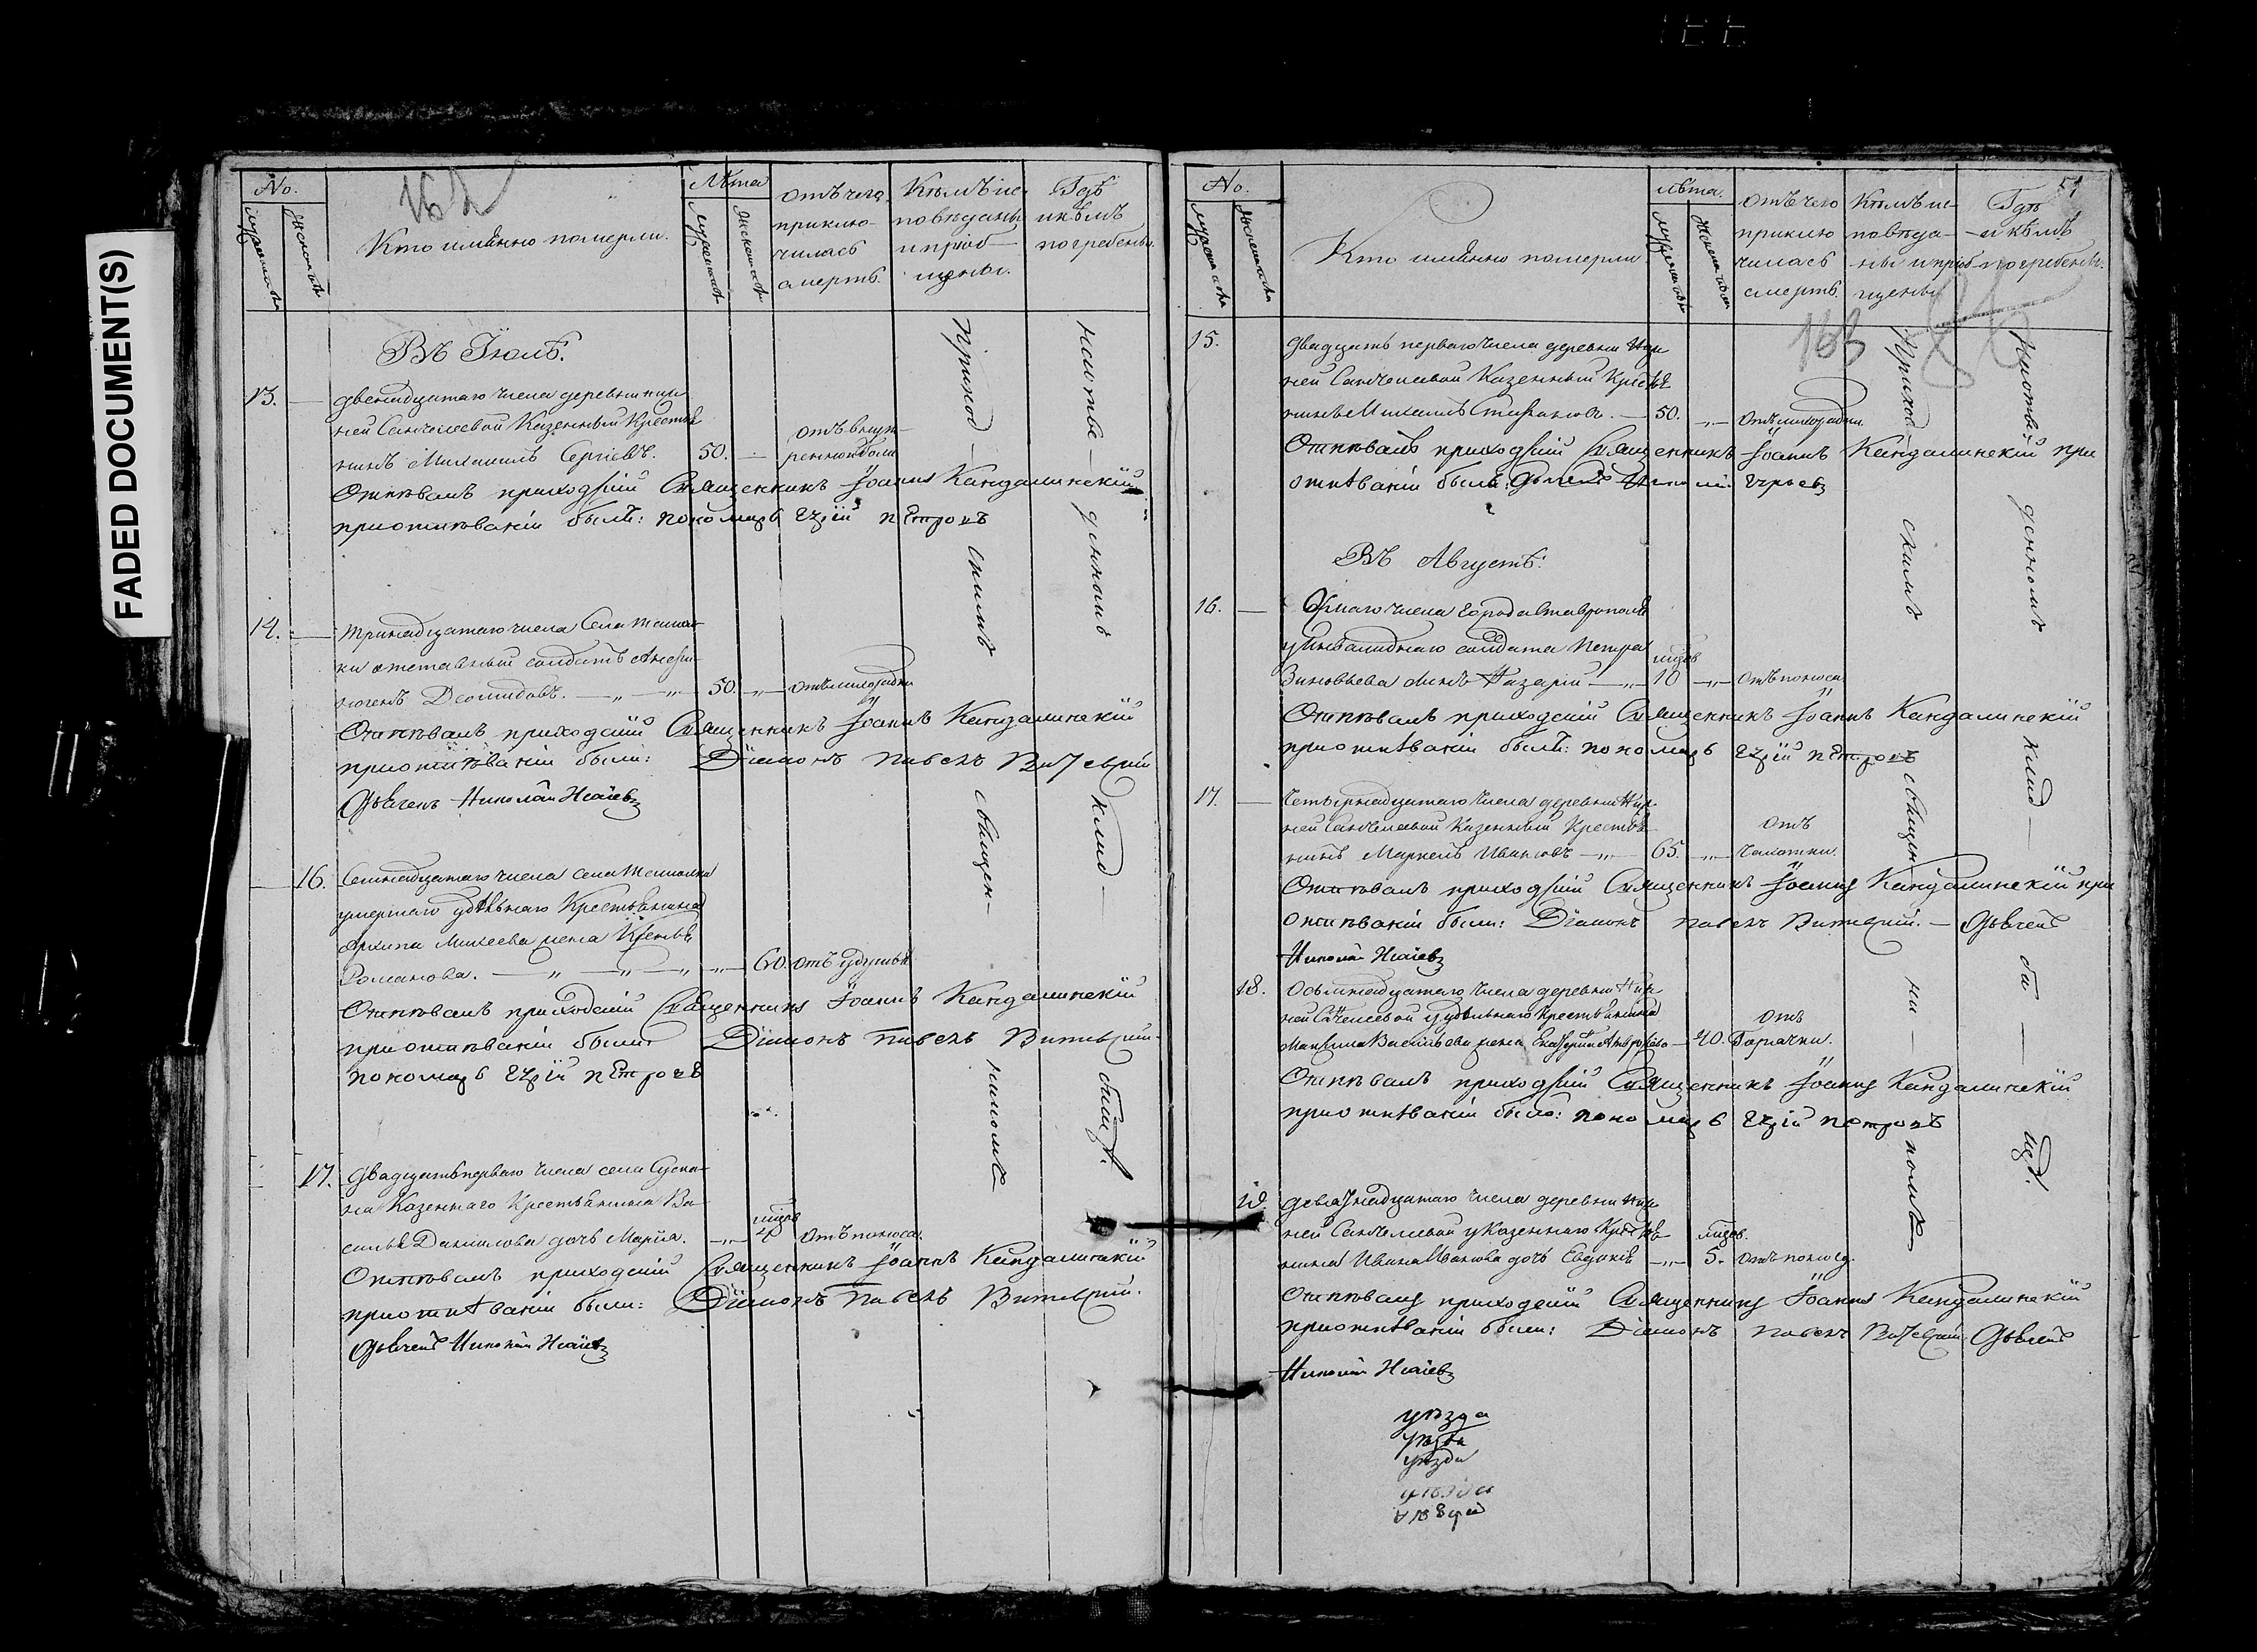 FADED DOCUMENT(S)
162
No.
Мужеска
Женска
Кто имянно померли.
Лѣта
Мужеска
Женска
отъ чего
приклю-
чилась
смерть.
Кѣмъ ис-
повѣданы
и пріоб-
щены.
Гдѣ
и кѣмъ
погребены.
Въ Іюлѣ.
13.
двенадцатаго числа деревни ниж
ней Санчелеевой Казенный Крестья
нинъ Михаилъ Сергѣевъ. 50.
отъ внут-
ренной боли
Отпѣвалъ приходскій Священникъ Іоаннъ Кандалинскій
при отпѣваніи былъ: пономарь Егій пЕтровъ
14.
тринадцатаго числа Села
отставный солдатъ
Деомидовъ. 50. отъ лихорадки
Отпѣвалъ приходскій Священникъ Іоаннъ Кандалинскій
при отпѣваніи были: Діаконъ павелъ
Николай Исаіевъ
16.
Семнадцатаго числа села
умершаго удѣльнаго Крестьянина
Архипа Михеева жена Ксенья
Романова. 60. отъ удушья
Отпѣвалъ приходскій Священникъ Іоаннъ Кандалинскій
при отпѣваніи были Діаконъ Павелъ
пономарь Егій пЕтровъ
17.
двадцать перваго числа села Сускa-
на Казеннаго Крестьянина Ва-
силья Данилова дочь Марья. 4 отъ поноса.
Отпѣвалъ приходскій Священникъ Іоаннъ Кандалинскій
при отпѣваніи были: Діаконъ Павелъ
Николай Исаіевъ
Приход-
скимъ
священ-
никомъ
на отве-
денномъ
клад-
бищѣ.
51
No.
Кто имянно померли
лѣта.
отъ чего
приклю
чилась
смерть.
Кѣмъ ис-
повѣда-
ны и пріоб-
щены
Гдѣ
и кѣмъ
погребены.
163
15.
двадцать перваго числа деревни Ниж
ней Санчелеевой Казенный Крестья
нинъ Михаилъ Степановъ. 50. отъ лихорадки
Отпѣвалъ приходскій Священникъ Іоаннъ Кандалинскій при
отпѣваніи былъ:
Въ Августѣ:
16.
числа города Ставрополя
у Инвалиднаго солдата Петра
Зиновьева сынъ Назарій 10 отъ поноса
Отпѣвалъ приходскій Священникъ Іоаннъ Кандалинскій
при отпѣваніи былъ: пономарь Егій пЕтровъ
17.
Четырнадцатаго числа деревни Ниж-
ней Санчелеевой Казенный Крестья-
нинъ Маркелъ Ивановъ 65. отъ
чахотки.
Отпѣвалъ приходскій Священникъ Іоаннъ Кандалинскій при
отпѣваніи были: Діаконъ павелъ
Николай Исаіевъ
18.
Осьмнадцатаго числа деревни Ниж-
ней Санчелеевой у удѣльнаго Крестьянина
Максима Васильева жена 40. отъ
Горячки.
Отпѣвалъ приходскій Священникъ Іоаннъ Кандалинскій
при отпѣваніи было: пономарь Егій петровъ
девятнадцатаго числа деревни Ниж-
ней Санчелеевой у Казеннаго Крестья-
нина Ивана Иванова дочь Евдокія 5. отъ поноса.
Отпѣвалъ приходскій Священникъ Іоаннъ Кандалинскій
при отпѣваніи были: Діаконъ павелъ
Николай Исаіевъ
уѣзда
уѣзда
уѣзда
Приход-
скимъ
священ-
ни-
комъ
на отве-
денномъ
клад-
би-
щѣ.